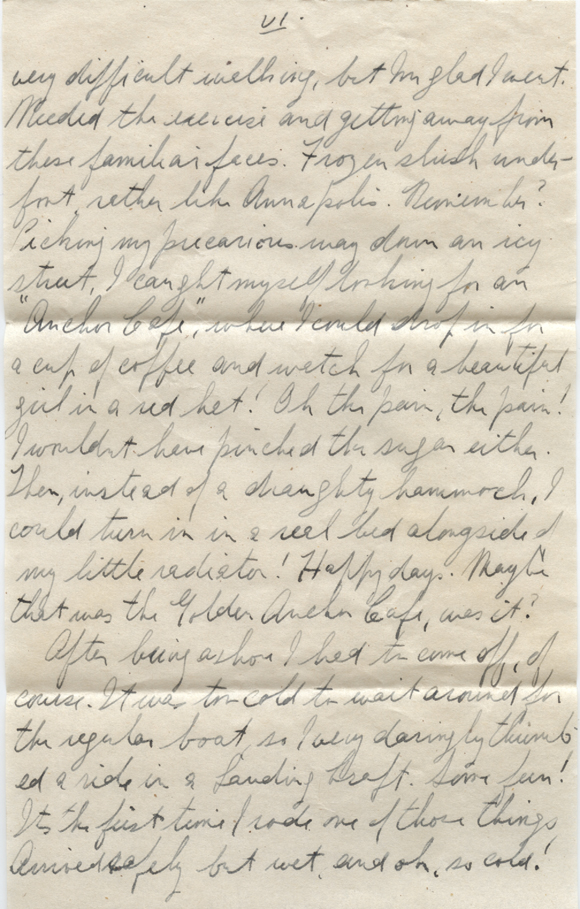 VI.
very difficult walking, but I'm glad I went.
Needed the exercise and getting away from
these familiar faces. Frozen slush under-
foot, rather like Annapolis. Remember?
Picking my precarious way down an icy
street, I caught myself looking for an
"Anchor Cafe", where I could drop in for
a cup of coffee and watch for a beautiful
girl in a red hat! Oh the pain, the pain!
I wouldn't have pinched the sugar either.
Then, instead of a draughty hammock, I
could turn in in a real bed alongside of
my little radiator! Happy days. Maybe
that was the Golden Anchor Cafe, was it?
After being ashore I had to come off, of
course. It was too cold to wait around for
the regular boat, so I very daringly thumb-
ed a ride in a Landing Craft. Some fun!
Its the first time I rode one of those things
Arrived safely but wet, and oh, so cold!